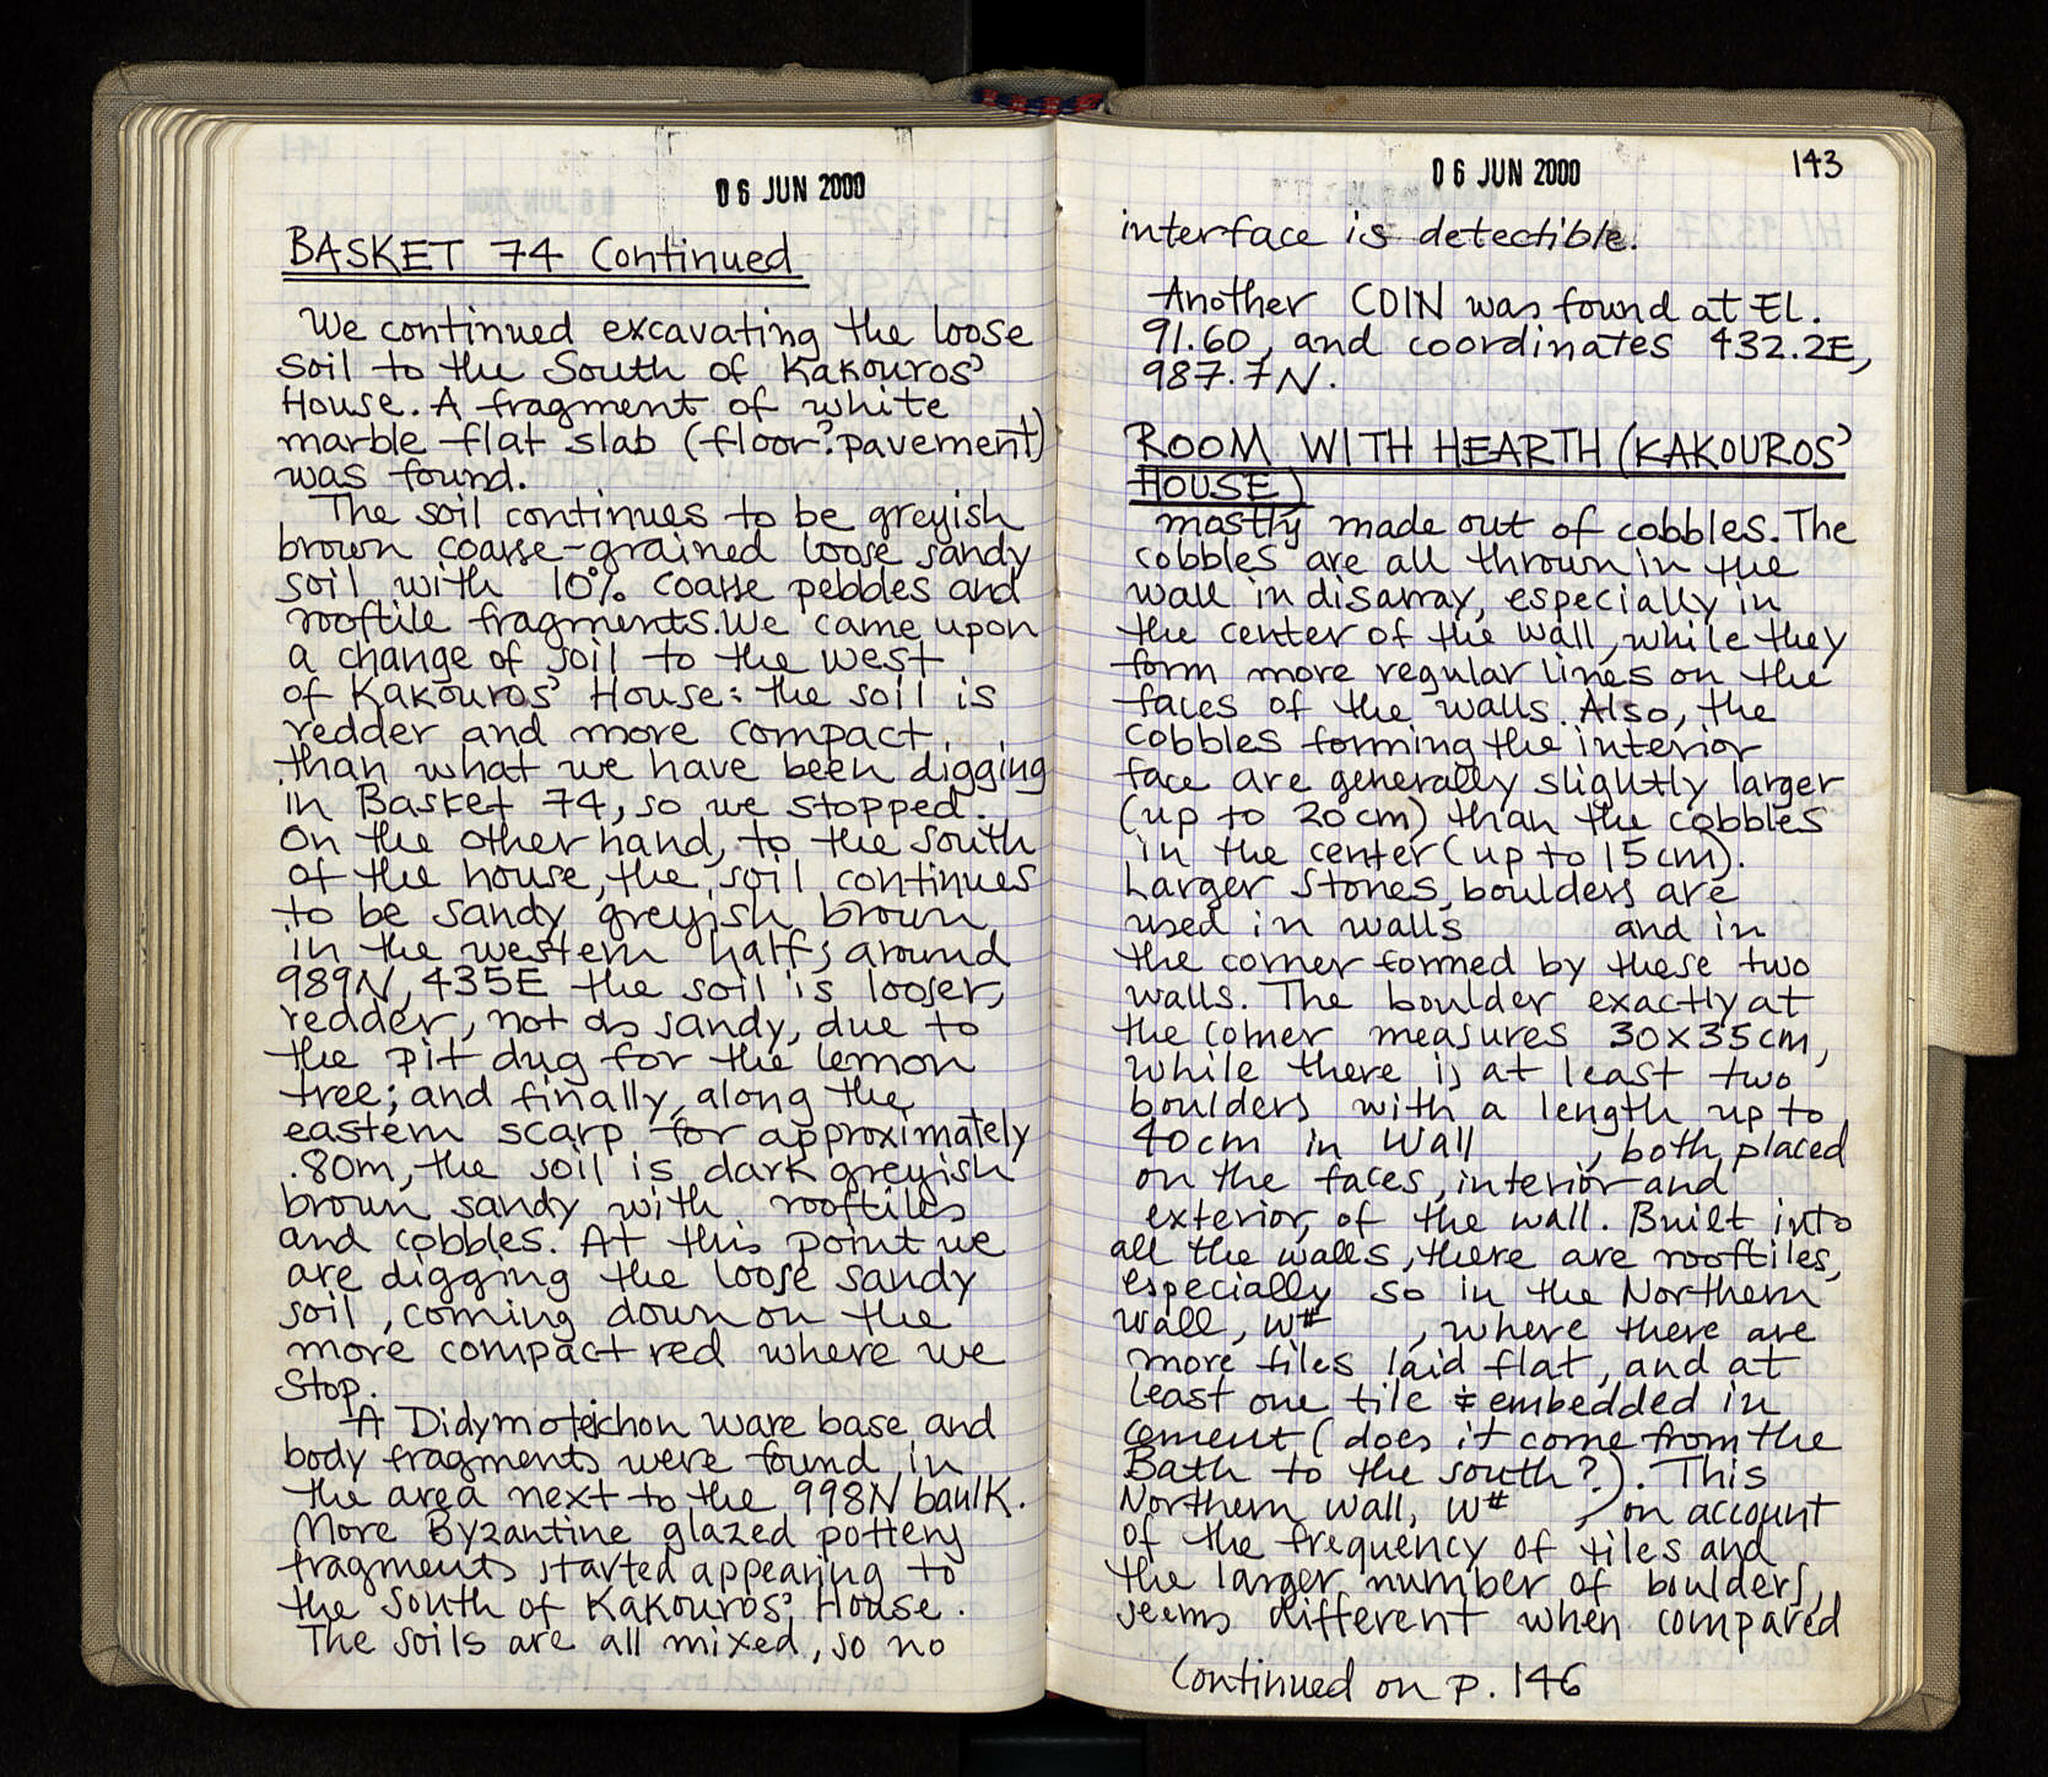 06 JUN 2000
BASKET 74 Continued
We continued excavating the loose
soil to the South of Kakouros'
House. A fragment of white
marble flat slab (floor? pavement)
was found.
The soil continues to be greyish
brown coarse-grained loose sandy
soil with 10% coarse pebbles and
rooftile fragments. We came upon
a change of soil to the west
of Kakouros' House: the soil is
redder and more compact
than what we have been digging
in Basket 74, so we stopped.
On the other hand, to the south
of the house, the soil continues
to be sandy greyish brown
in the western half; around
989N, 435E the soil is looser,
redder, not as sandy, due to
the pit dug for the lemon
tree; and finally, along the
eastern scarp for approximately
.80m, the soil is dark greyish
brown sandy with rooftiles
and cobbles. At this point we
are digging the loose sandy
soil, coming down on the
more compact red where we
stop.
A Didymoteichon ware base and
body fragments were found in
the area next to the 998N baulk.
More Byzantine glazed pottery
fragments started appearing to
the south of Kakouros' House.
The soils are all mixed, so no
06 JUN 2000
143
interface is detectible.
Another COIN was found at El.
91.60, and coordinates 432.2E,
987.7N.
ROOM WITH HEARTH (KAKOUROS'
HOUSE)
mostly made out of cobbles. The
cobbles are all thrown in the
wall in disarray, especially in
the center of the wall, while they
form more regular lines on the
faces of the walls. Also, the
cobbles forming the interior
face are generally slightly larger
(up to 20cm) than the cobbles
in the center (up to 15cm).
Larger stones, boulders are
used in walls and in
the corner formed by these two
walls. The boulder exactly at
the corner measures 30x35cm,
while there is at least two
boulders with a length up to
40cm in Wall , both placed
on the faces, interior and
exterior, of the wall. Built into
all the walls, there are rooftiles,
especially so in the Northern
Wall, W# , where there are
more tiles laid flat, and at
least one tile embedded in
cement (does it come from the
Bath to the south?). This
Northern Wall, W# , on account
of the frequency of tiles and
the larger number of boulders,
seems different when compared
Continued on p. 146